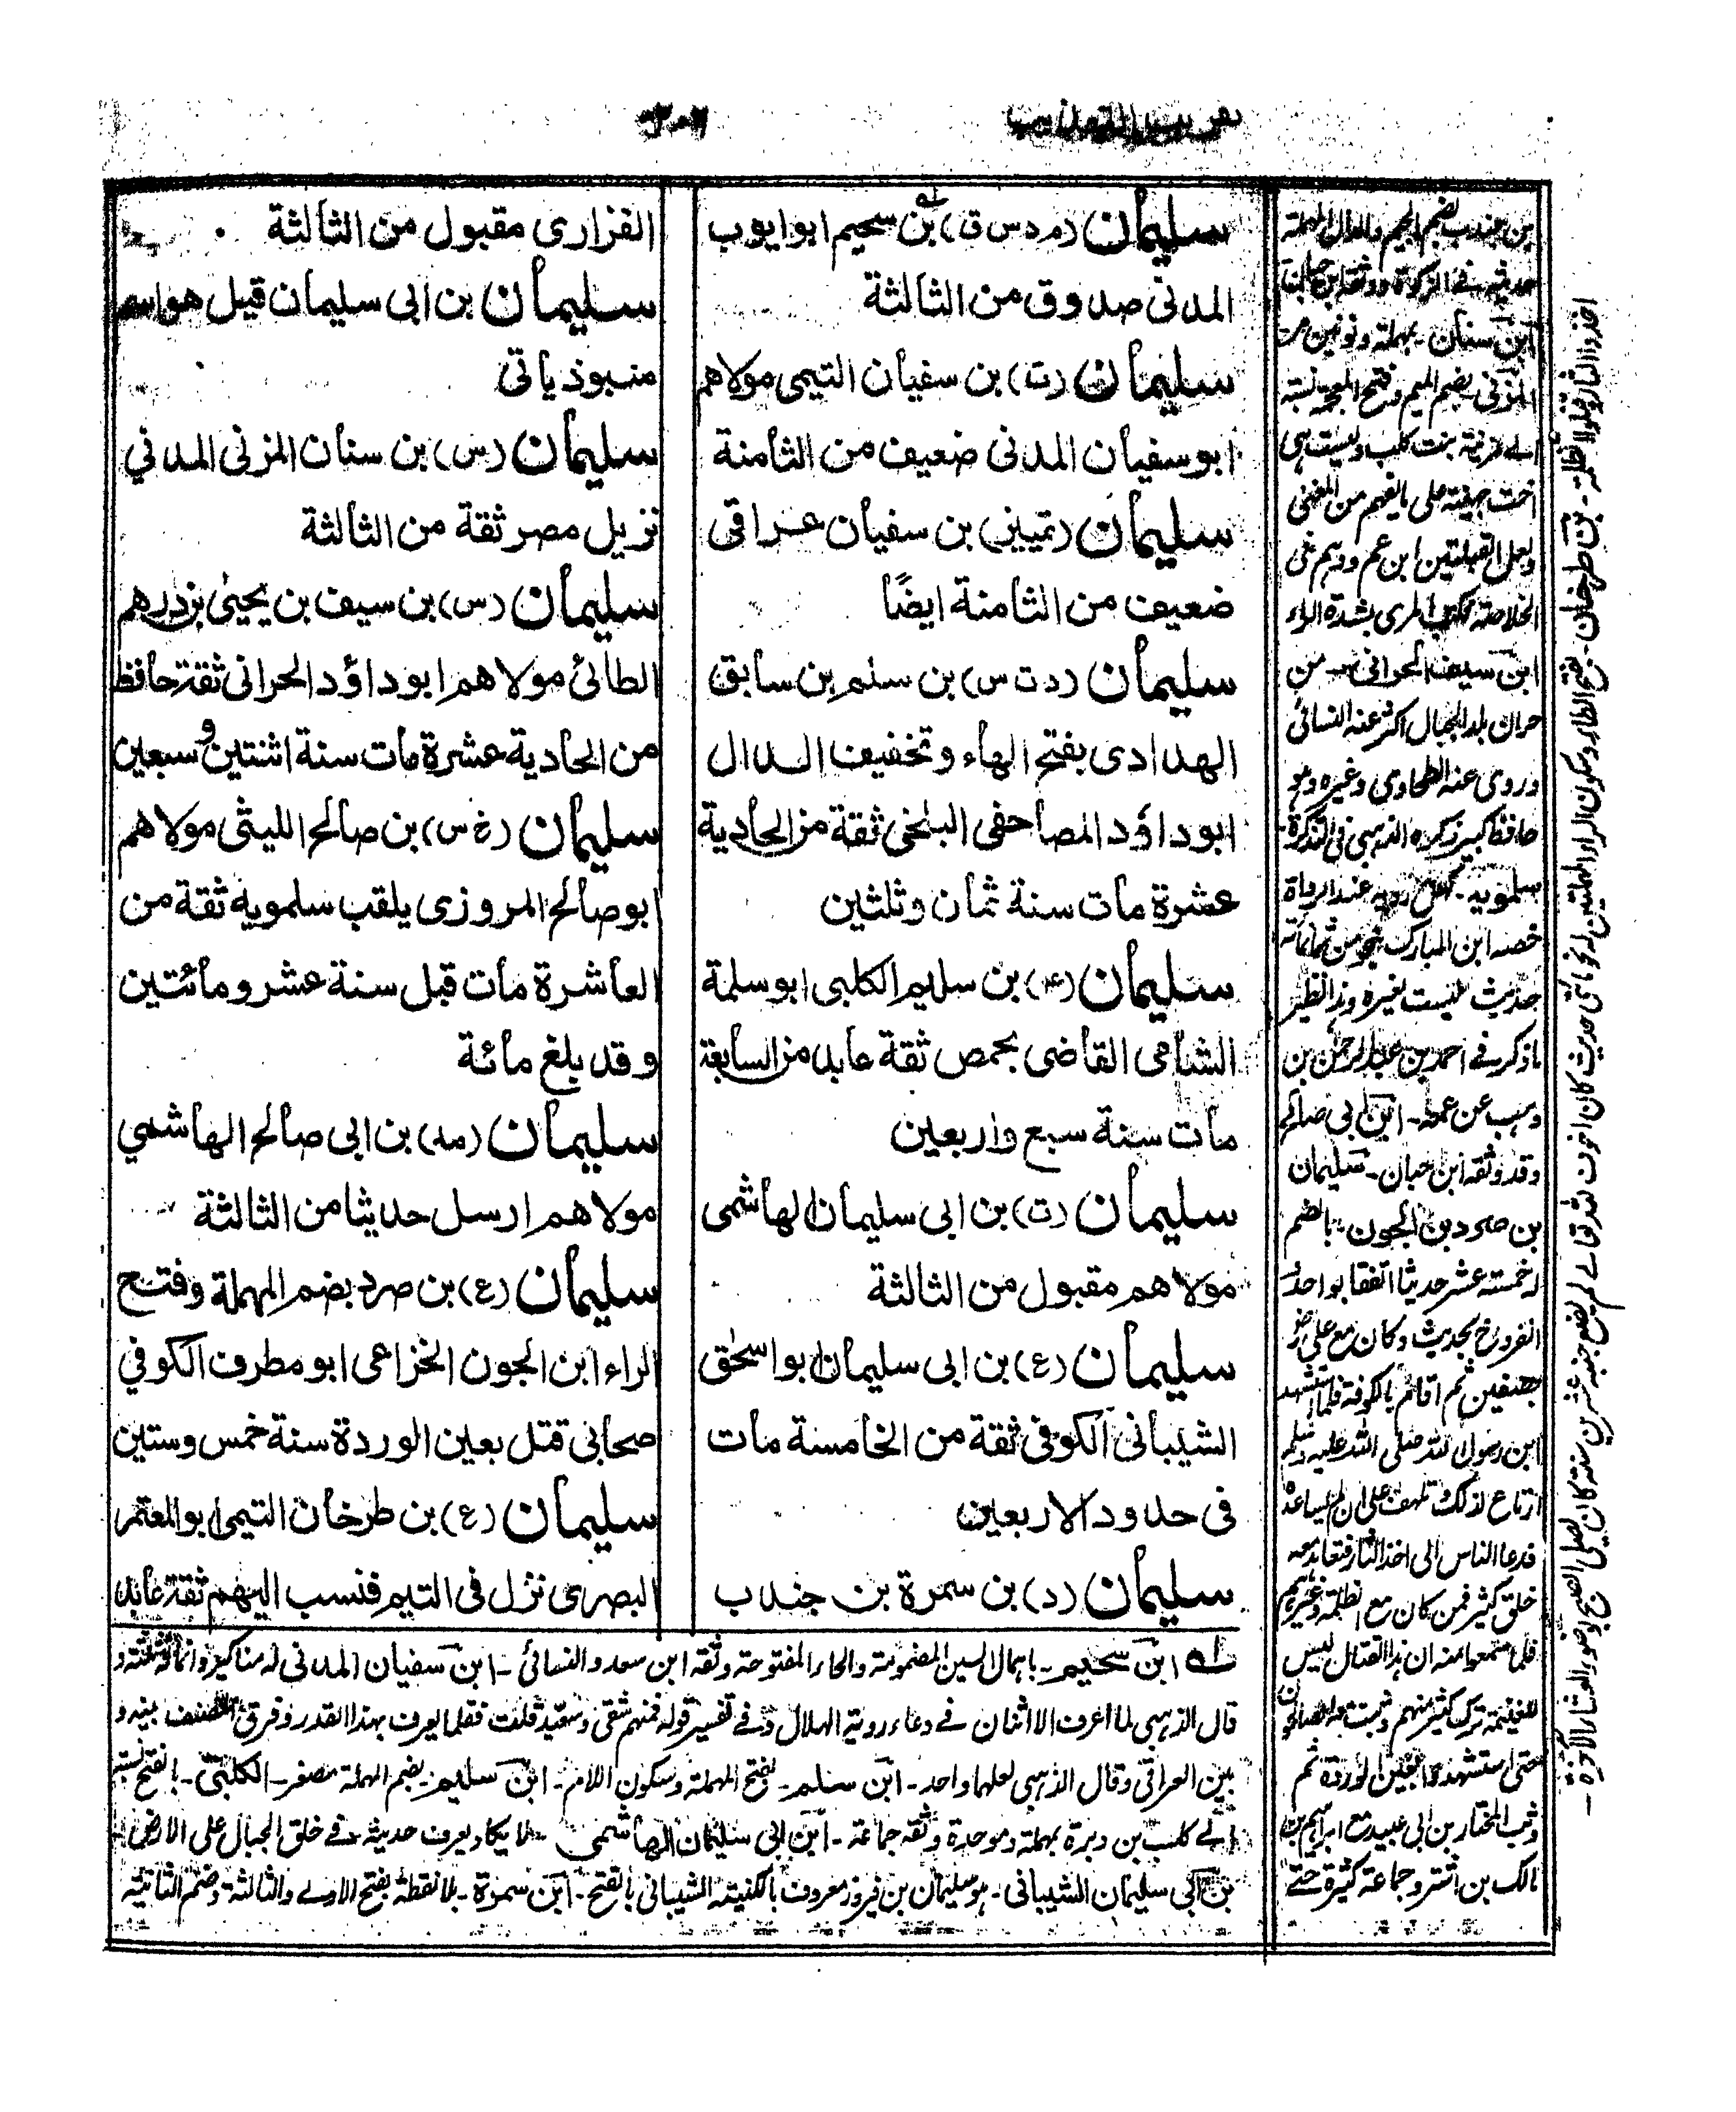 تقريب التهذيب
٢٠٢
سليمان (م د س ق) بن سحيم ابو ايوب
المدنى صدوق من الثالثة
سليمان (ت) بن سفيان التيمى مولاهم
ابو سفيان المدنى ضعيف من الثامنة
سليمان (تمييز) بن سفيان عراقى
ضعيف من الثامنة ايضًا
سليمان (د ت س) بن سلم بن سابق
الهدادى بفتح الهاء وتخفيف الدال
ابو داؤد المصاحفى البلخى ثقة من الحادية
عشرة مات سنة ثمان وثلثين
سليمان (۴) بن سليم الكلبى ابو سلمة
الشامى القاضى بحمص ثقة عابد من السابعة
مات سنة سبع واربعين
سليمان (ت) بن ابى سليمان الهاشمى
مولاهم مقبول من الثالثة
سليمان (ع) بن ابى سليمان ابو اسحٰق
الشيبانى الكوفى ثقة من الخامسة مات
فى حدود الاربعين
سليمان (د) بن سمرة بن جندب
الفزارى مقبول من الثالثة
سليمان بن ابى سليمان قيل هو اسم
منبوذ ياتى
سليمان (س) بن سنان المزنى المدني
نزيل مصر ثقة من الثالثة
سليمان (س) بن سيف بن يحيىٰ بن درهم
الطائى مولاهم ابو داؤد الحرانى ثقة حافظ
من الحادية عشرة مات سنة اثنتين وسبعين
سليمان (خ س) بن صالح الليثى مولاهم
ابو صالح المروزى يلقب سلمويه ثقة من
العاشرة مات قبل سنة عشر ومائتين
وقد بلغ مائة
سليمان (مد) بن ابى صالح الهاشمي
مولاهم ارسل حديثا من الثالثة
سليمان (ع) بن صرد بضم المهملة وفتح
الراء ابن الجون الخزاعى ابو مطرف الكوفي
صحابى قتل بعين الوردة سنة خمس وستين
سليمان (ع) بن طرخان التيمى ابو المعتمر
البصرى نزل فى التيم فنسب اليهم ثقة عابد
ابن سحيم - باهمال السين المضمومة والحاء المفتوحة وثقه ابن سعد والنسائى - ابن سفيان المدنى له مناكير
قال الذهبى لما اعرف الا اثنان فى دعاء روية الهلال وفى تفسير قوله فمنهم شقى وسعيد قلت فقلما يعرف بهذا القدر وفرق المصنف بينه و
بين العراقى وقال الذهبى لعلهما واحد - ابن سلم - بفتح المهملة وسكون اللام - ابن سليم - بضم المهملة مصغر - الكلبى - بالفتح نسبة
الى كلب بن وبرة بمهملة وموحدة وثقه جماعة - ابن ابى سليمان الهاشمى - لا يكاد يعرف حديثه فى خلق الجبال على الارض
بن ابى سليمان الشيبانى - هو سليمان بن فيروز معروف بالكنية الشيبانى بالفتح - ابن سمرة - بلا نقطة بفتح الاولى والثالثة وضم الثانية
بن جندب بضم الجيم والدال المهملة
حديثه فى الزكوة ووثقه ابن حبان
ابن سنان - بمهملة ونونين
المزنى بضم الميم وفتح المعجمة نسبة
الى مزينة بنت كلب وليست هى
اخت جهينة على ما يفهم من المغنى
ولعل القبيلتين ابن عم ووهم فى
الخلاصة فكتب المرى بشدة الراء
ابن سيف الحرانى - من
حران بلد الجبال اكثر عنه النسائى
وروى عنه الطحاوى وغيره وهو
حافظ كبير ذكره الذهبى فى التذكرة -
سلمويه -
خصه ابن المبارك بنحو من ثمانمائة
حديث ليست لغيره وهذا نظير
ما ذكر فى احمد بن عبد الرحمن بن
وهب عن عمه - ابن ابى صالح
وقد وثقه ابن حبان - سليمان
بن صرد بن الجون - بالضم
له خمسة عشر حديثا اتفقا بواحد
انفرد خ بحديث وكان مع على رض
بصفين ثم اقام بالكوفة فلما استشهد
ابن رسول الله صلى الله عليه وسلم
ارتاع لذلك وتلهف على ان لم يساعده
فدعا الناس الى اخذ الثار فتعاهد معه
خلق كثير فمن كان مع الظلمة وغيرهم
فلما سمعوا منه ان هذا القتال ليس
للغنيمة ترك كثير منهم وثبت معه الصالحون
حتى استشهدوا بعين الوردة ثم
وثب المختار بن ابى عبيد مع ابراهيم بن
مالك بن اشتر وجماعة كثيرة حتى
اخذوا الثار وقتلوا الظلمة - بن طرخان - بفتح الطاء وسكون الراء المهملتين له نحو مائتى حديث كان اخوف لله تعالى لم يضع جنبه عشرين سنة كان يصلى الصبح بوضوء العشاء الآخرة -